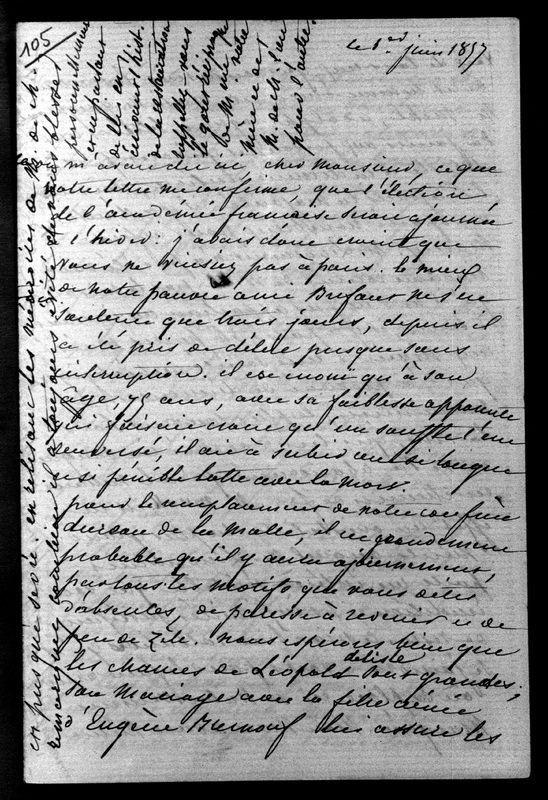 105
le 1er juin 1857
m'avait dit ici, cher Monsieur, ce que
votre lettre me confirme que l'élection
de l'académie française serait ajournée
à l'hiver. j'avais donc craint que
vous ne vinssiez pas à paris. le mieux
de notre pauvre ami Brifaut ne s'est
soutenu que trois jours, depuis il
a été pris de délire presque sans
interruption. il est inouï qu'à son
âge, 75 ans, avec sa faiblesse apparente
qui faisait croire qu'un souffle l'eut
renversé, il ait à subir une si longue
et si pénible lutte avec la mort.
pour le remplacement de notre confrère
dureau de la Malle, il est grandement
probable qu'il y aura ajournement,
par tous les motifs que vous dites
d'absences, de paresse à revenir et de
peu de zèle. nous espérons bien que
les chances de Léopold delisle sont grandes;
son mariage avec la fille aînée
d'Eugène Burnouf lui assure les
est presque sévère. en relisant les mémoires de M. de Ch.
remarquez combien il a toujours évité de
personnellement
en parlant
de lui en
de la restauration
rappelez-vous
le gout
mère et de
pour l'autre.